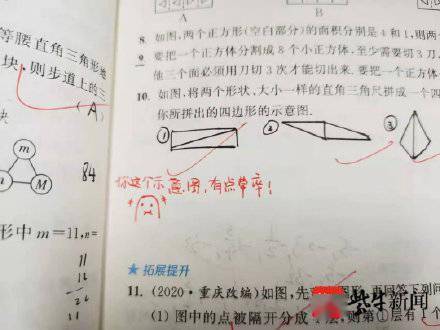 A
B
8. 如图,两个正方形(空白部分)的面积分别是 4 和 1,则两个
9. 要把一个正方体分割成 8 个小正方体,至少需要切 3 刀,
他三个面必须用刀切 3 次才能切出来.要把一个正方体
10. 如图,将两个形状、大小一样的直角三角尺拼成一个四
你所拼出的四边形的示意图.
① ② ③
你这个示意图,有点草率!
★ 拓展提升
11. (2020·重庆改编)如图,先
图形,再回答下列问
(1) 图中的点被隔开分成
层,则第 1 层有 1 个
等腰直角三角形地
块,则步道上的三
(A)
块
m
n
M
84
形中 m=11,n=
11
紫牛新闻